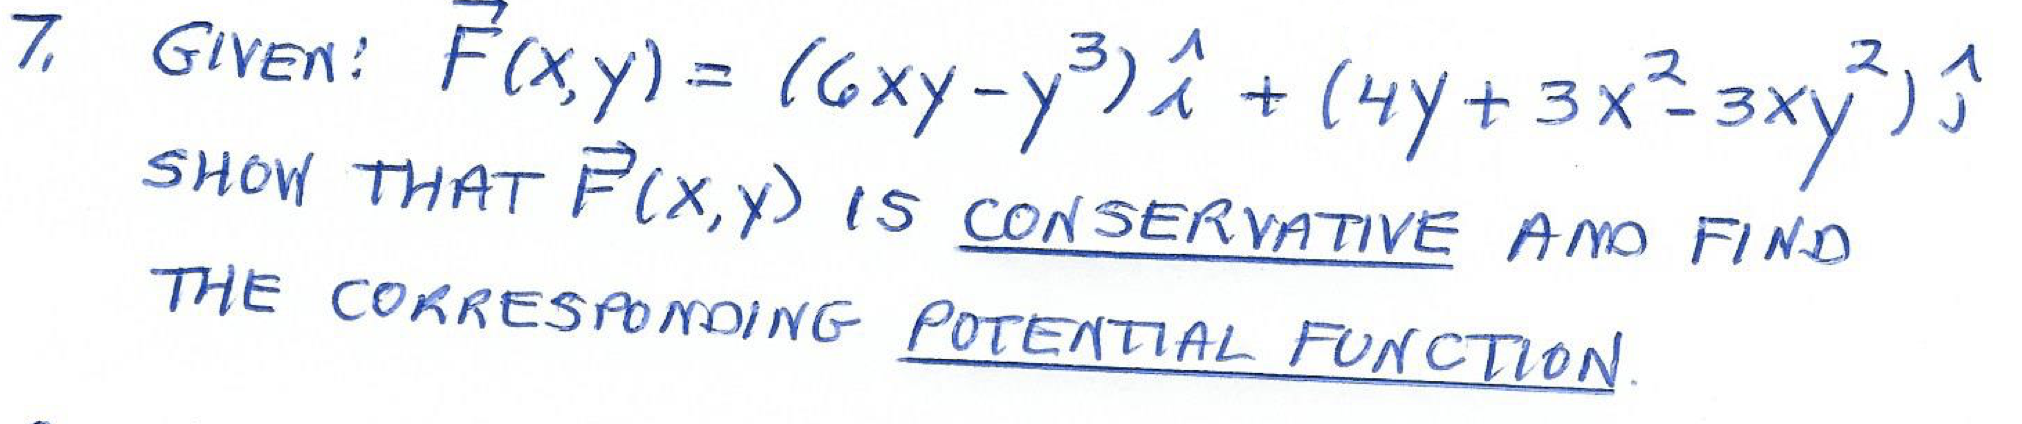 7. GIVEN: F⃗(x,y) = (6xy-y³) î + (4y+3x²-3xy²) ĵ
SHOW THAT F⃗(x,y) IS CONSERVATIVE AND FIND
THE CORRESPONDING POTENTIAL FUNCTION.